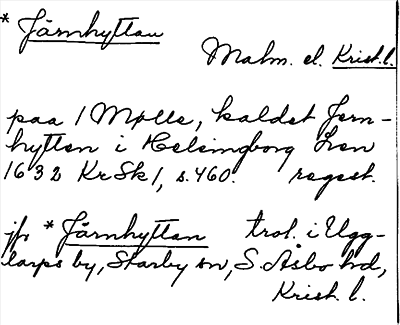 * Järnhyttan
Malm. el. Krist. l.
paa 1 Mølle, kaldet Jern-
hytten i Helsingborg Len
1632 KrSk1, s. 460. regest.
jfr *Järnhyttan trol. i Ugg-
larps by, Starby sn, S. Åsbo hd,
Krist. l.